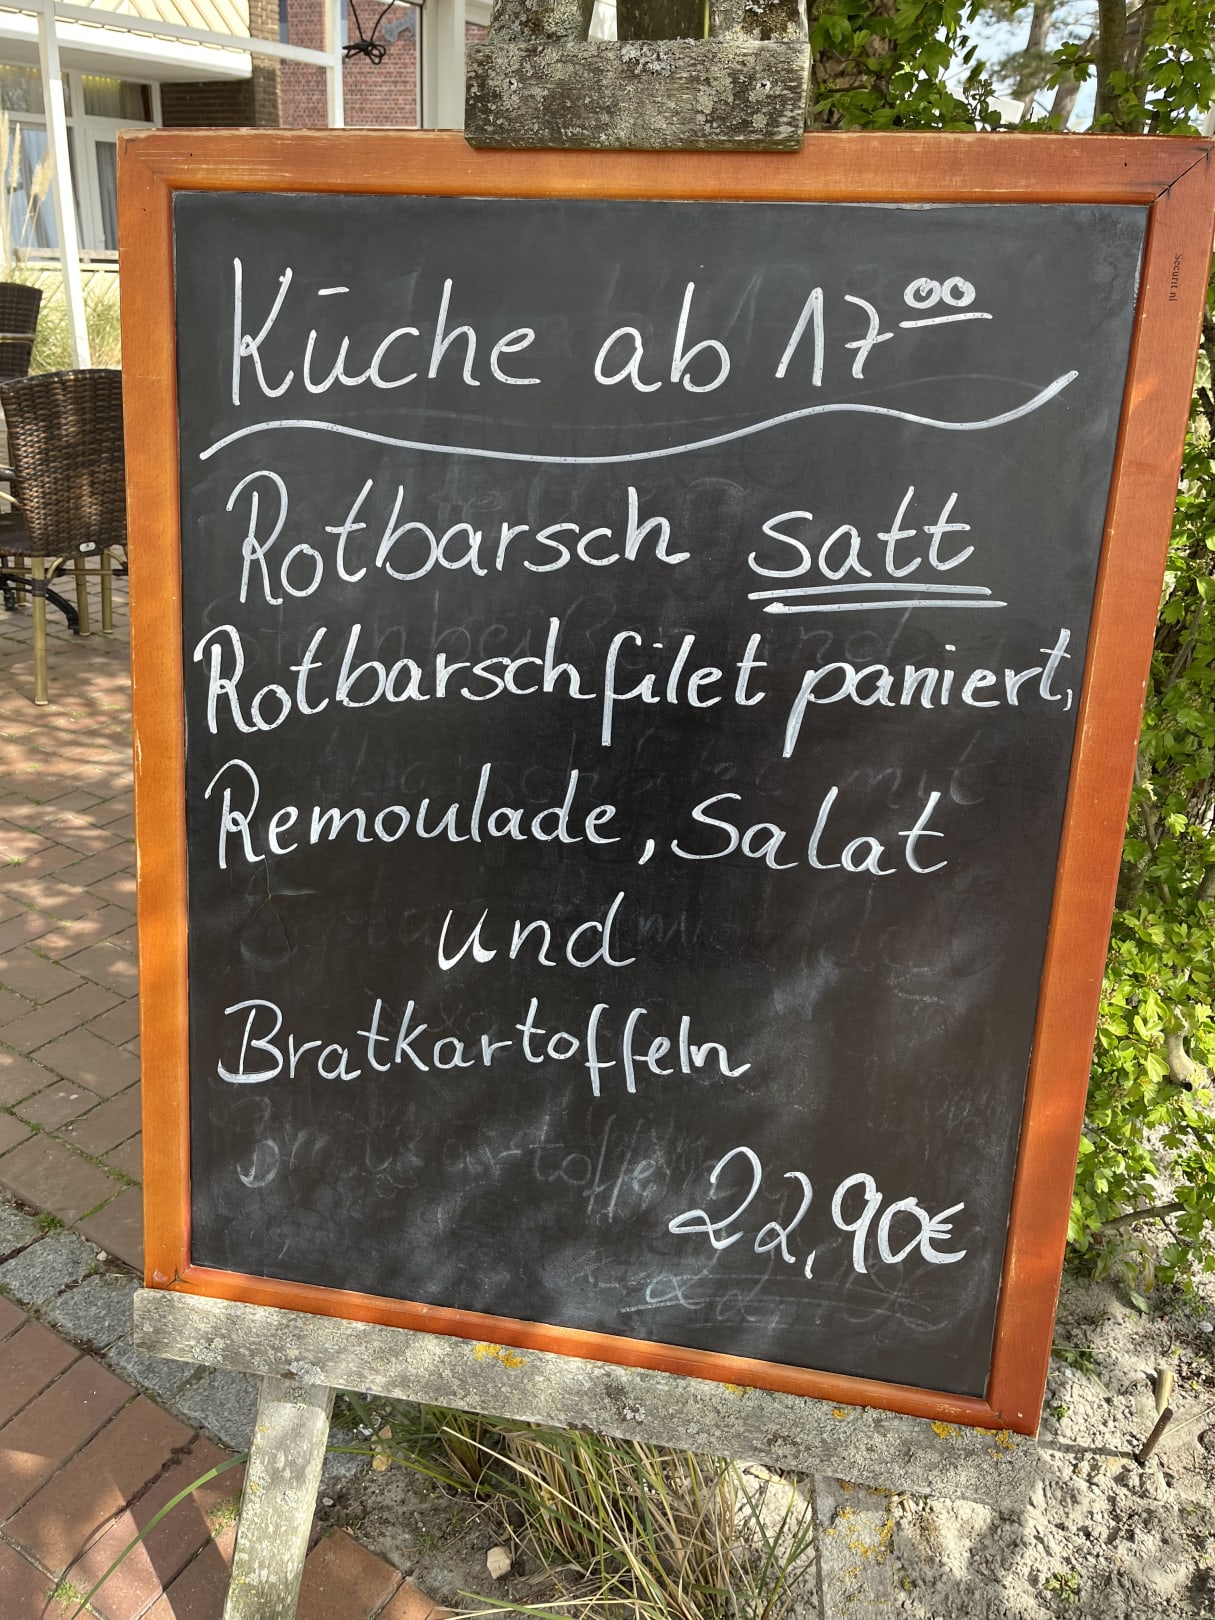 Küche ab 17 00
Rotbarsch satt
Rotbarschfilet paniert,
Remoulade, Salat
und
Bratkartoffeln
22,90€
Securit nl